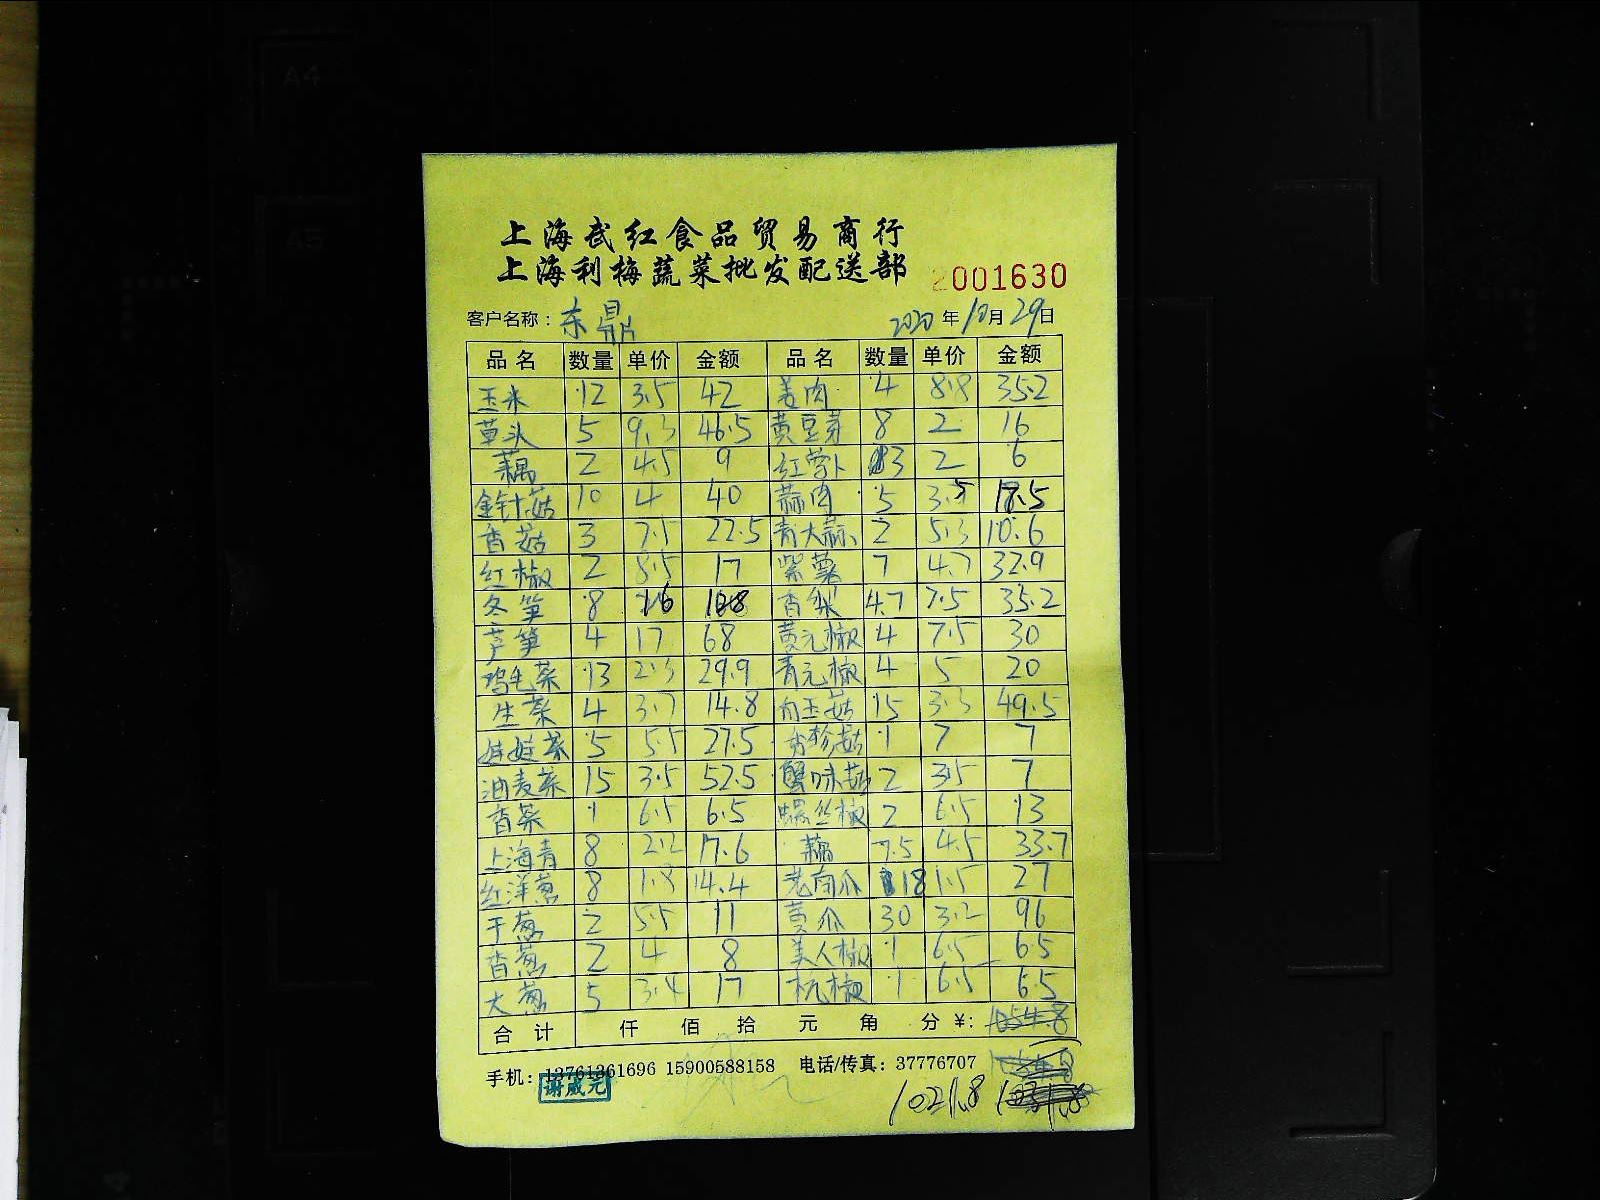 A4
A5
上海武红食品贸易商行
上海利梅蔬菜批发配送部 2001630
客户名称：东鼎 2020年10月29日
品名 数量 单价 金额 品名 数量 单价 金额
玉米 12 3.5 42 姜肉 4 8.8 35.2
草头 5 9.3 46.5 黄豆芽 8 2 16
藕 2 4.5 9 红萝卜 3 2 6
金针菇 10 4 40 蒜肉 5 3.5 17.5
香菇 3 7.5 22.5 青大蒜 2 5.3 10.6
红椒 2 8.5 17 紫薯 7 4.7 32.9
冬笋 8 16 128 香梨 4.7 7.5 35.2
芦笋 4 17 68 黄元椒 4 7.5 30
鸡毛菜 13 2.3 29.9 青元椒 4 5 20
生菜 4 3.7 14.8 白玉菇 15 3.3 49.5
娃娃菜 5 5.5 27.5 秀珍菇 1 7 7
油麦菜 15 3.5 52.5 蟹味菇 2 3.5 7
香菜 1 6.5 6.5 螺丝椒 2 6.5 13
上海青 8 2.2 17.6 藕 7.5 4.5 33.7
红洋葱 8 1.8 14.4 老南瓜 18 1.5 27
干葱 2 5.5 11 黄瓜 30 3.2 96
香葱 2 4 8 美人椒 1 6.5 6.5
大葱 5 3.4 17 杭椒 1 6.5 6.5
合计 仟 佰 拾 元 角 分 ¥: 1054.8
手机：13761361696 15900588158 电话/传真：37776707
谢成元
1021.8